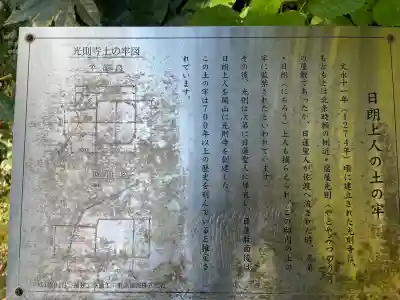 日朗上人の土の牢
文永十一年(1274年)頃に建立された光則寺は、
もともとは北条時頼の側近・宿屋光則(やどやみつのり)
の屋敷であったが、日蓮聖人が佐渡へ流された時、弟
・日朗(にちろう)上人も捕えられ、この邸内の土の
牢に監禁されたといわれています。
その後、光則は次第に日蓮聖人に帰依し、日蓮赦面後は、
日朗上人を開山に光則寺を創建した。
この土の牢は700年以上の歴史を刻んでいると推定さ
れています。
光則寺土の牢図
平面図